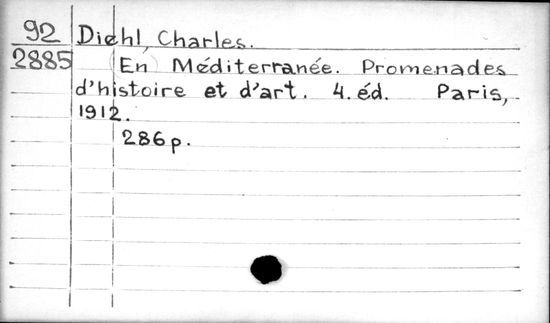 92 Diehl, Charles.
2885 (En) Méditerranée. Promenades
d'histoire et d'art. 4. éd. Paris,
1912.
286 p.